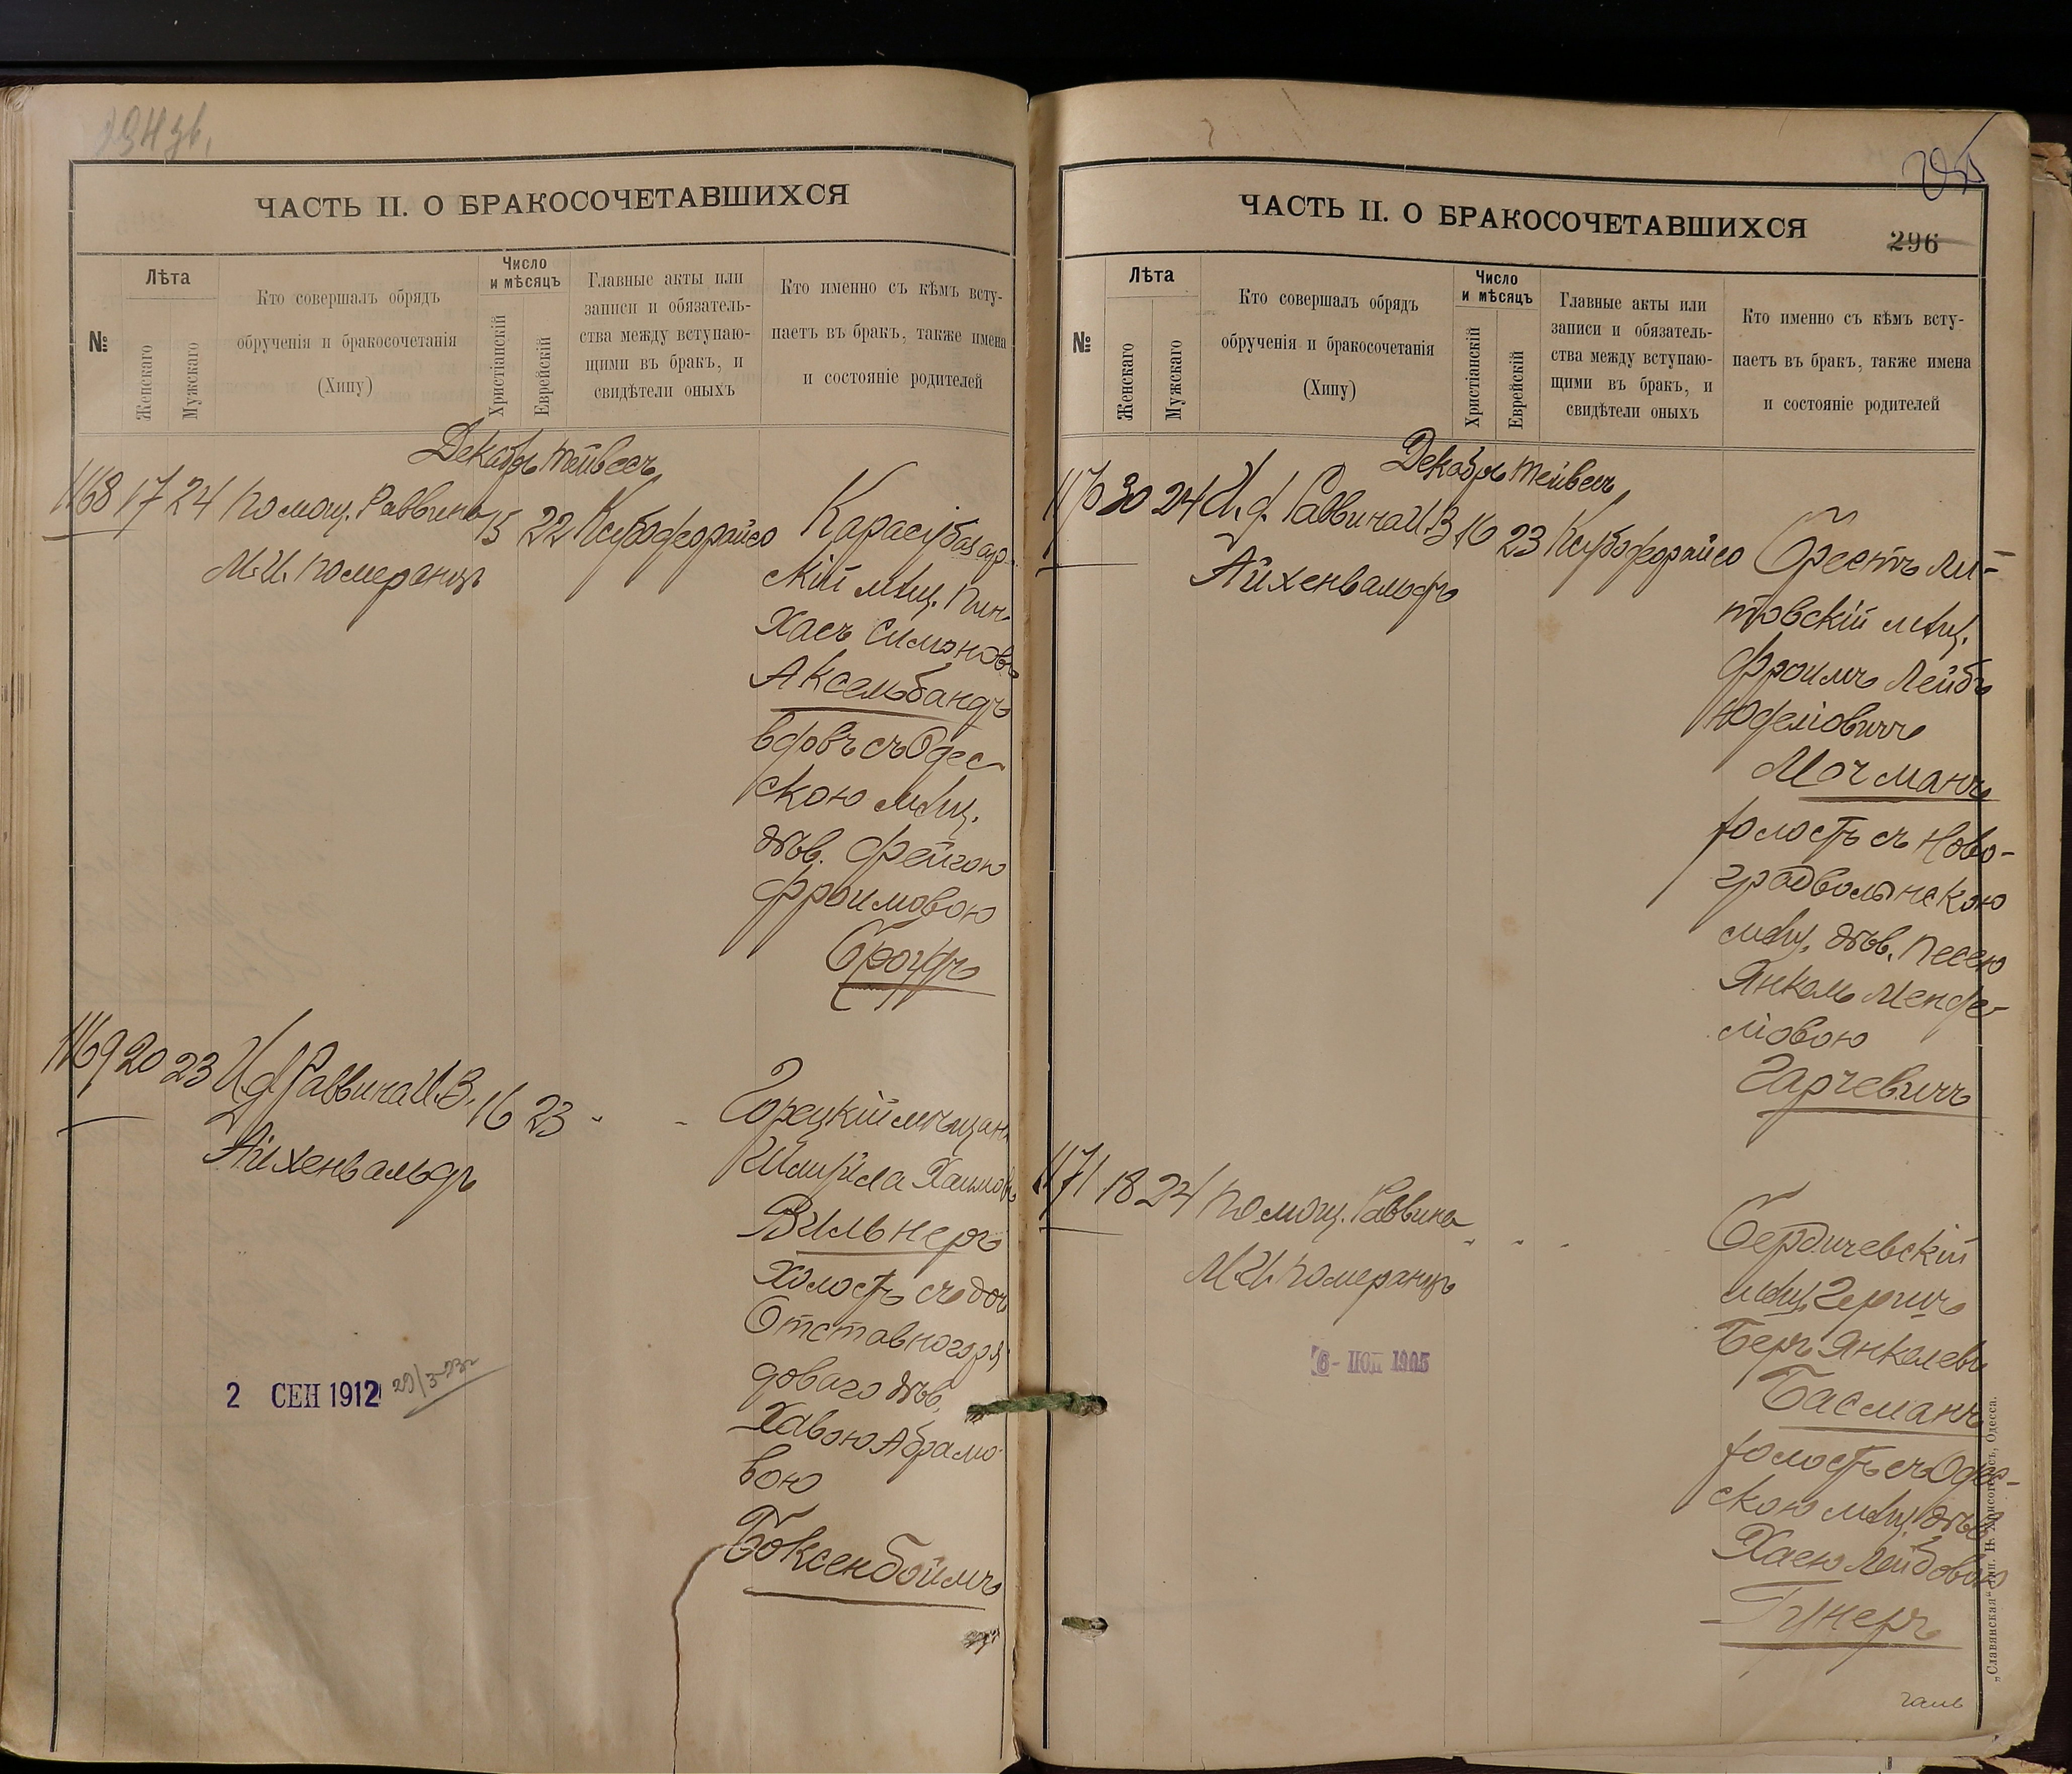 294 об.
ЧАСТЬ II. О БРАКОСОЧЕТАВШИХСЯ
№
Лѣта
Женскаго
Мужскаго
Кто совершалъ обрядъ
обрученія и бракосочетанія
(Хипу)
Число
и мѣсяцъ
Христіанскій
Еврейскій
Главные акты или
записи и обязатель-
ства между вступаю-
щими въ бракъ, и
свидѣтели оныхъ
Кто именно съ кѣмъ всту-
паетъ въ бракъ, также имена
и состояніе родителей
Декабрь Тейвесъ
1168 17 24 Помощ. Раввина 15 22 Ксубо федрайсо
М. И. Померанцъ
Карасубазар-
скій мѣщ. Пин-
хасъ Симоновъ
Аксельбандъ
вдовъ съ Одес
скою мѣщ.
дѣв. Фейгою
Фроимовою
Бродъ
1169 20 23 И. д. Раввина И. В. 16 23 - -
Айхенвальдъ
Горецкій мѣщан
Шмуйла Хаимовъ
Вильнеръ
холостъ съ доч
Отставного ря
доваго дѣв.
Хавою Абрамо-
вою
Боксенбоймъ
2 СЕН 1912
29/3-23г
ЧАСТЬ II. О БРАКОСОЧЕТАВШИХСЯ
296
295
№
Лѣта
Женскаго
Мужскаго
Кто совершалъ обрядъ
обрученія и бракосочетанія
(Хипу)
Число
и мѣсяцъ
Христіанскій
Еврейскій
Главные акты или
записи и обязатель-
ства между вступаю-
щими въ бракъ, и
свидѣтели оныхъ
Кто именно съ кѣмъ всту-
паетъ въ бракъ, также имена
и состояніе родителей
Декабрь Тейвесъ
1170 30 24 И. д. Раввина И. В. 16 23 Ксубо федрайсо
Айхенвальдъ
Брестъ Ли-
товскій мѣщ.
Фроимъ Лейбъ
Юделіовичъ
Мочманъ
холостъ съ Ново-
градволынскою
мѣщ. дѣв. Песею
Янкель Менде-
ліовою
Гарчевичъ
1171 18 24 Помощ. Раввина - - -
М. И. Померанцъ
Бердичевскій
мѣщ. Гершъ
Беръ Янкелевъ
Басманъ
холостъ съ Одес-
скою мѣщ. дѣв.
Хаею Лейбовою
Гунеръ
1905
„Славянская" Тип. Н. Хрисогелосъ, Одесса.